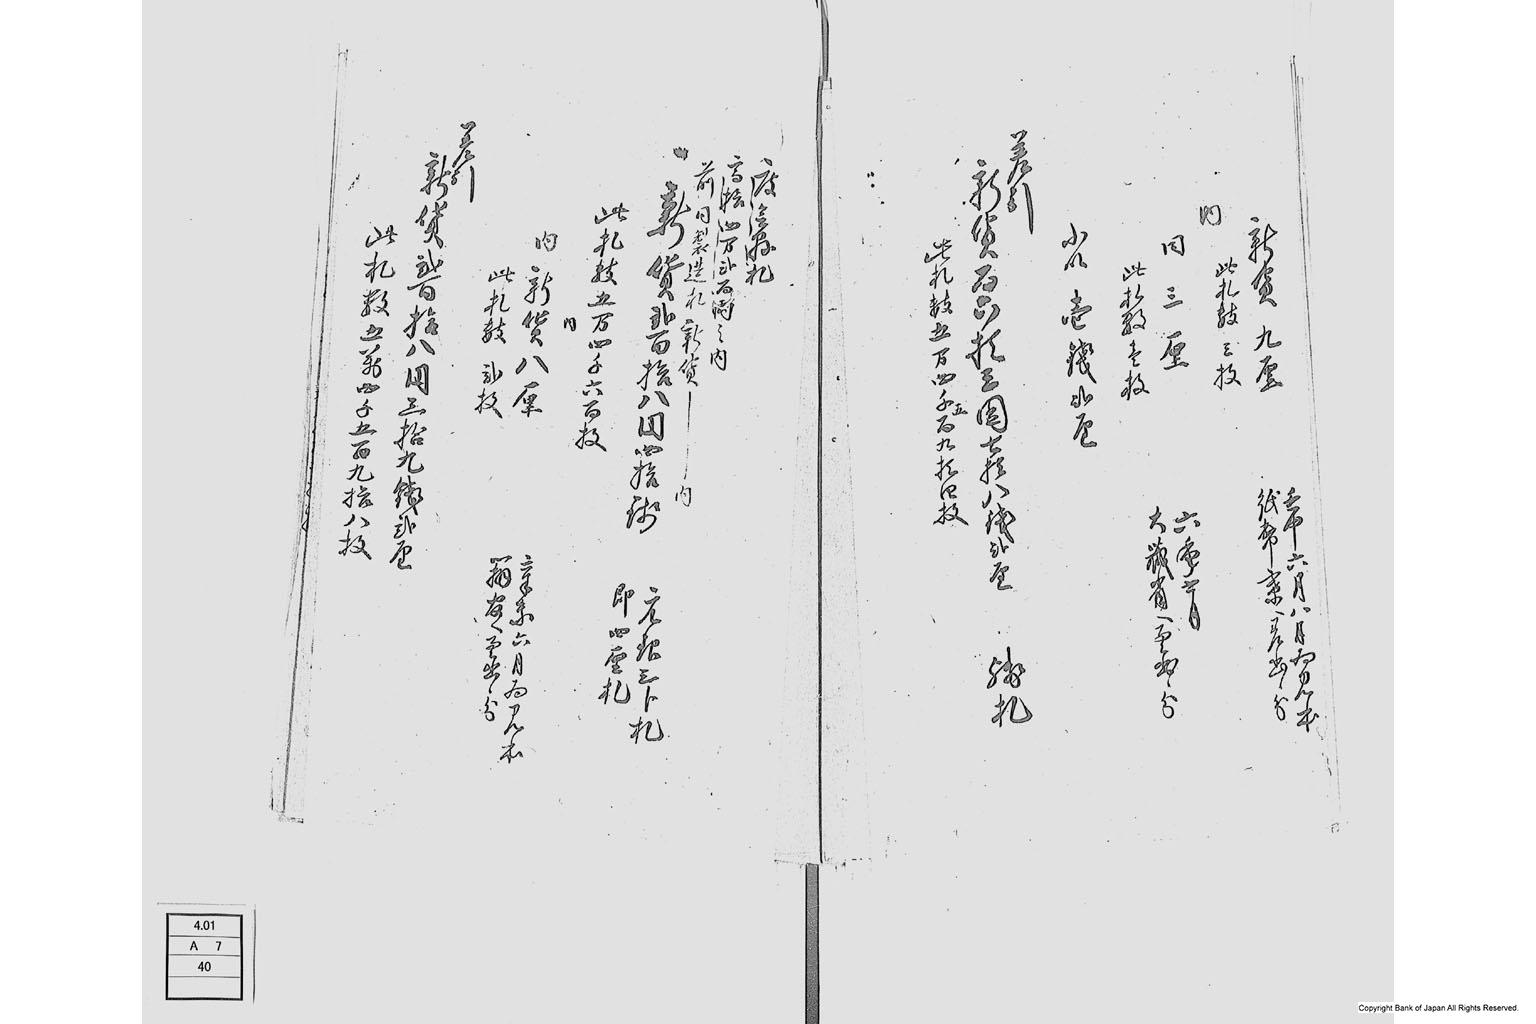 新貨九厘
壬申六月八月為見本
紙幣寮へ差出ス分
内
此札数三枚
同三厘
六年七月
大蔵省へ差出ス分
此札数壱枚
小以壱銭弐厘
差引
新貨百六拾三円七拾八銭弐厘
札
此札数五万四千五百九拾四枚
度会県札
高拾四万弐百之内
前同製造札新貨 内
新貨弐百拾八円四拾銭
元銀三分札
即四厘札
此札数五万四千六百枚
内
内新貨八厘
辛未六月為見本
差出ス分
此札数弐枚
差引
新貨弐百拾八円三拾九銭弐厘
此札数五万四千五百九拾八枚
4.01
A 7
40
Copyright Bank of Japan All Rights Reserved.